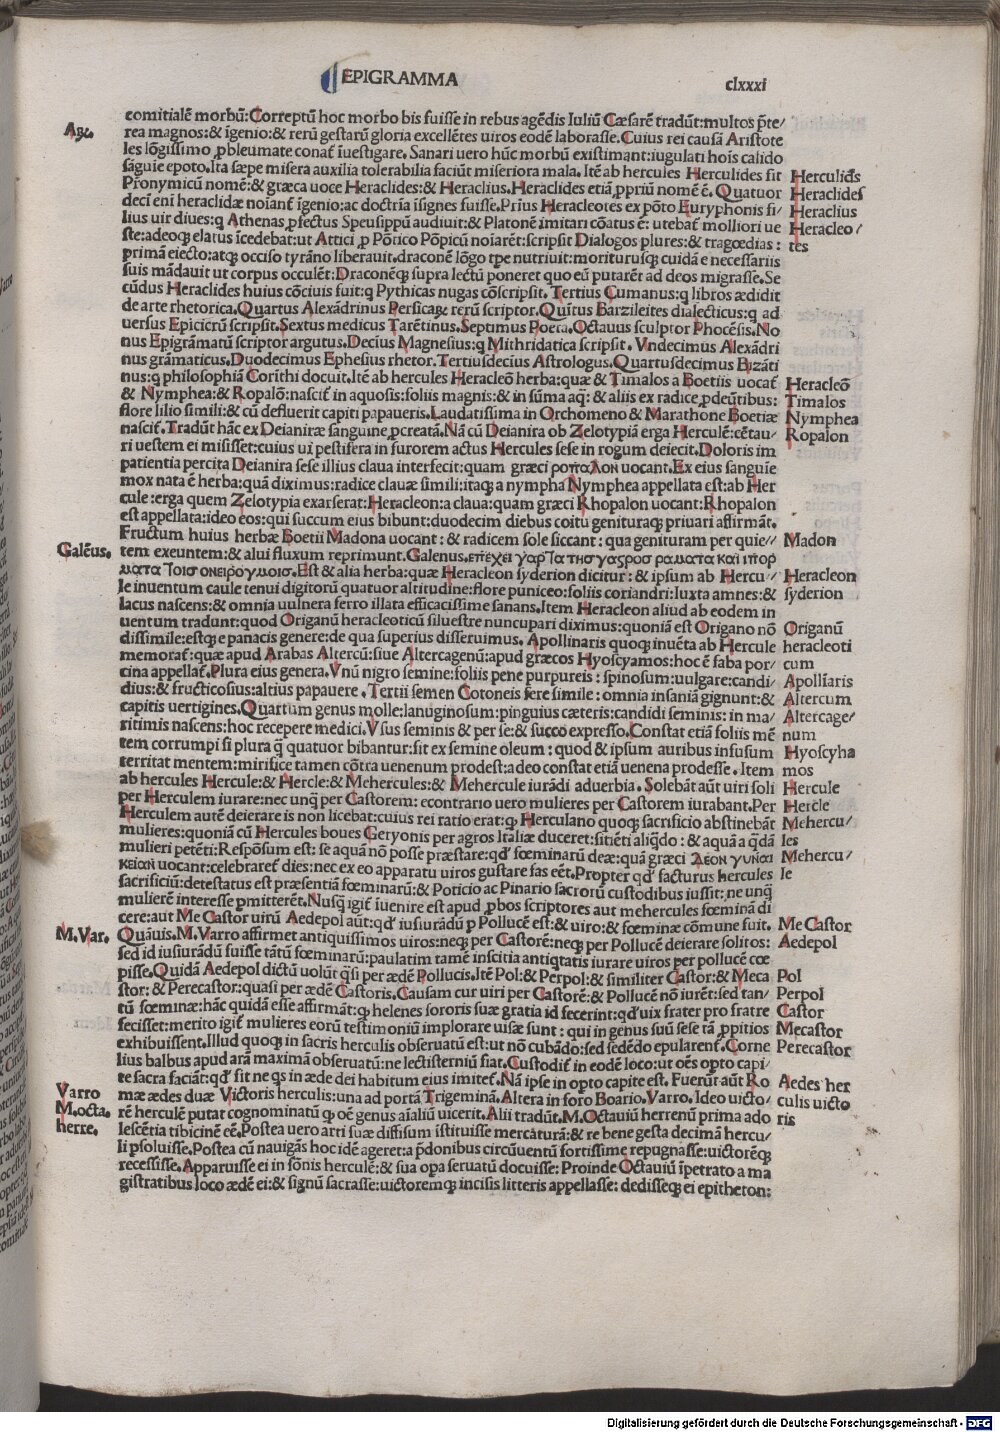 EPIGRAMMA
clxxxi
comitialē morbū: Correptū hoc morbo bis fuisse in rebus agēdis Iuliū Cæsarē tradūt: multos p̄te/
rea magnos: & īgenio: & rerū gestarū gloria excellētes uiros eodē laborasse. Cuius rei causā Aristote
les lōgissimo ꝓbleumate conat̄ īuestigare. Sanari uero hūc morbū existimant: iugulati hoīs calido
sāguie epoto. Ita sæpe misera auxilia tolerabilia faciūt miseriora mala. Itē ab hercules Herculides fit
Pr̄onymicū nomē: & græca uoce Heraclides: & Heraclius. Heraclides etiā ꝓpriū nomē ē. Quatuor
deci enī heraclidæ noīant̄ īgenio: ac doctrīa īsignes fuisse. Prius Heracleotes ex pōto Euryphonis fi/
lius uir diues: q Athenas ꝓfectus Speusippū audiuit: & Platonē imitari cōatus ē: utebat̄ molliori ue
ste: adeoqꝫ elatus īcedebat: ut Attici ꝓ Pōtico Pōpicū noīarēt: scripsit Dialogos plures: & tragœdias:
primā eiecto: atqꝫ occiso tyrāno liberauit. draconē lōgo tꝑe nutriuit: moriturusqꝫ cuidā e necessariis
suis mādauit ut corpus occulēt: Draconēqꝫ supra lectū poneret quo eū putarēt ad deos migrasse. Se
cūdus Heraclides huius cōciuis fuit: q Pythicas nugas cōscripsit. Tertius Cumanus: q libros ædidit
de arte rhetorica. Quartus Alexādrinus Persicaꝝ rerū scriptor. Quītus Barzileites dialecticus: q ad
uersus Epicicrū scripsit. Sextus medicus Tarētinus. Septimus Poeta. Octauus sculptor Phocēsis. No
nus Epigrāmatū scriptor argutus. Decius Magnesius: q Mithridatica scripsit. Vndecimus Alexādri
nus grāmaticus. Duodecimus Ephesius rhetor. Tertiusdecius Astrologus. Quartusdecimus Bizāti
nus: q philosophiā Corīthi docuit. Itē ab hercules Heracleō herba: quæ & Timalos a Boetiis uocat̄
& Nymphea: & Ropalō: nascit̄ in aquosis: foliis magnis: & in sūma aq: & aliis ex radice ꝓdeūtibus:
flore lilio simili: & cū defluerit capiti papaueris. Laudatissima in Orchomeno & Marathone Boetiæ
nascit̄. Tradūt hāc ex Deianiræ sanguine ꝓcreatā. Nā cū Deianira ob Zelotypiā erga Herculē: cētau/
ri uestem ei misisset: cuius ui pestifera in furorem actus Hercules sese in rogum deiecit. Doloris im
patientia percita Deianira sese illius claua interfecit: quam græci ροπαλον uocant. Ex eius sanguīe
mox nata ē herba: quā diximus: radice clauæ simili: itaqꝫ a nympha Nymphea appellata est: ab Her
cule: erga quem Zelotypia exarserat: Heracleon: a claua: quam græci Rhopalon uocant: Rhopalon
est appellata: ideo eos: qui succum eius bibunt: duodecim diebus coitu genituraqꝫ priuari affirmāt.
Fructum huius herbæ Boetii Madona uocant: & radicem sole siccant: qua genituram per quie/
tem exeuntem: & alui fluxum reprimunt. Galenus. επεχει γαρ τα τησ γασροσ ραματα και ιπορ
ματα τοισ ονειρογμοισ. Est & alia herba: quæ Heracleon syderion dicitur: & ipsum ab Hercu/
le inuentum caule tenui digitorū quatuor altitudine: flore puniceo: foliis coriandri: Iuxta amnes: &
lacus nascens: & omnia uulnera ferro illata efficacissime sanans. Item Heracleon aliud ab eodem in
uentum tradunt: quod Origanū heracleoticū siluestre nuncupari diximus: quoniā est Origano nō
dissimile: estqꝫ e panacis genere: de qua superius disseruimus. Apollinaris quoqꝫ inuēta ab Hercule
memorat̄: quæ apud Arabas Altercū: siue Altercagenū: apud græcos Hyoscyamos: hoc ē faba por/
cina appellat̄. Plura eius genera. Vnū nigro semine: foliis pene purpureis: spinosum: uulgare: candi/
dius: & fructicosius: altius papauere. Tertii semen Cotoneis fere simile: omnia insaniā gignunt: &
capitis uertigines. Quartum genus molle: lanuginosum: pinguius cæteris: candidi seminis: in ma/
ritimis nascens: hoc recepere medici. Vsus seminis & per se: & succo expresso. Constat etiā foliis mē
tem corrumpi si plura q̄ quatuor bibantur: fit ex semine oleum: quod & ipsum auribus infusum
territat mentem: mirifice tamen cōtra uenenum prodest: adeo constat etiā uenena prodesse. Item
ab hercules Hercule: & Hercle: & Mehercules: & Mehercule iurādi aduerbia. Solebāt aūt uiri soli
per Herculem iurare: nec unq̄ per Castorem: econtrario uero mulieres per Castorem iurabant. Per
Herculem autē deierare is non licebat: cuius rei ratio erat: qꝫ Herculano quoqꝫ sacrificio abstinebāt
mulieres: quoniā cū Hercules boues Geryonis per agros Italiæ duceret: sitiēti aliqdo: & aquā a qdā
mulieri petēti: Respōsum est: se aquā nō posse præstare: qd' fœminarū deæ: quā græci θεον γυναι
κειαν uocant: celebraret̄ dies: nec ex eo apparatu uiros gustare fas eēt. Propter qd' facturus hercules
sacrificiū: detestatus est præsentiā fœminarū: & Poticio ac Pinario sacrorū custodibus iussit: ne unq̄
mulierē interesse ꝑmitterēt. Nusq̄ igit̄ iuenire est apud ꝓbos scriptores aut mehercules fœminā di
cere: aut Me Castor uirū Aedepol aūt: qd' iusiurādū ꝑ Pollucē est: & uiro: & fœminæ cōmune fuit.
Quāuis. M. Varro affirmet antiquissimos uiros: neqꝫ per Castorē: neqꝫ per Pollucē deierare solitos:
sed id iusiurādū fuisse tātū fœminarū: paulatim tamē inscitia antiqtatis iurare uiros per pollucē cœ
pisse. Quidā Aedepol dictū uolūt q̄si per ædē Pollucis. Itē Pol: & Perpol: & similiter Castor: & Meca
stor: & Perecastor: quasi per ædē Castoris. Causam cur uiri per Castorē: & Pollucē nō iurēt: sed tan/
tū fœminæ: hāc quidā esse affirmāt: qꝫ helenes sororis suæ gratia id fecerint: qd' uix frater pro fratre
fecisset: merito igit̄ mulieres eorū testimoniū implorare uisæ sunt: qui in genus suū sese tā ꝓpitios
exhibuissent. Illud quoqꝫ in sacris herculis obseruatū est: ut nō cubādo: sed sedēdo epularent̄. Corne
lius balbus apud arā maximā obseruatū: ne lectisterniū fiat. Custodit̄ in eodē loco: ut oēs opto capi/
te sacra faciāt: qd' fit ne qs in æde dei habitum eius imitet̄. Nā ipse in opto capite est. Fuerūt aūt Ro
mæ ædes duæ Victoris herculis: una ad portā Trigeminā. Altera in foro Boario. Varro. Ideo uicto/
rē herculē putat cognominatū qꝫ oē genus aīaliū uicerit. Alii tradūt. M. Octauiū herrenū prima ado
lescētia tibicinē eē. Postea uero arti suæ diffisum īstituisse mercaturā: & re bene gesta decimā hercu/
li ꝓsoluisse. Postea cū nauigās hoc idē ageret: a p̄donibus circūuentū fortissime repugnasse: uictorēqꝫ
recessisse. Apparuisse ei in sōnis herculē: & sua opa seruatū docuisse: Proinde Octauiū īpetrato a ma
gistratibus loco ædē ei: & signū sacrasse: uictoremqꝫ incisis litteris appellasse: dedisseqꝫ ei epitheton:
Galēus.
M. Var.
Varro
M. octa.
herre.
Herculides
Heraclides
Heraclius
Heracleo/
tes
Heracleō
Timalos
Nymphea
Ropalon
Madon
Heracleon
syderion
Origanū
heracleoti
cum
Apolliaris
Altercum
Altercage/
num
Hyoscyha
mos
Hercule
Hercle
Mehercu/
les
Mehercu/
le
Me Castor
Aedepol
Pol
Perpol
Castor
Mecastor
Perecastor
Aedes her
culis uicto
ris
Digitalisierung gefördert durch die Deutsche Forschungsgemeinschaft - DFG